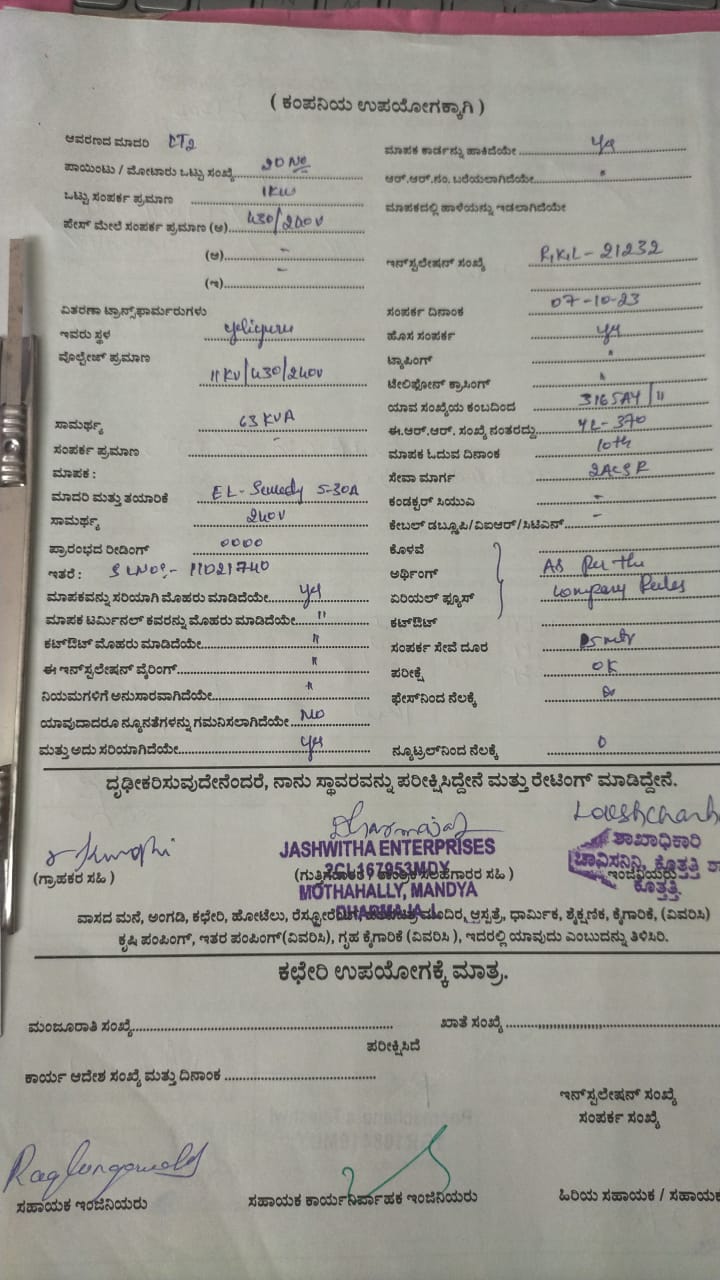 ( ಕಂಪನಿಯ ಉಪಯೋಗಕ್ಕಾಗಿ )
ಆವರಣದ ಮಾದರಿ LT2
ಪಾಯಿಂಟು / ಮೋಟಾರು ಒಟ್ಟು ಸಂಖ್ಯೆ 20 No
ಒಟ್ಟು ಸಂಪರ್ಕ ಪ್ರಮಾಣ 1KW
ಪೇಸ್ ಮೇಲೆ ಸಂಪರ್ಕ ಪ್ರಮಾಣ (ಅ) 430/240V
(ಆ) -
(ಇ) -
ವಿತರಣಾ ಟ್ರಾನ್ಸ್‌ಫಾರ್ಮರುಗಳು
ಇವರು ಸ್ಥಳ
ವೊಲ್ಟೇಜ್ ಪ್ರಮಾಣ 11KV/430/240V
ಸಾಮರ್ಥ್ಯ 63 KVA
ಸಂಪರ್ಕ ಪ್ರಮಾಣ -
ಮಾಪಕ :
ಮಾದರಿ ಮತ್ತು ತಯಾರಿಕೆ EL- 5-30A
ಸಾಮರ್ಥ್ಯ 240V
ಪ್ರಾರಂಭದ ರೀಡಿಂಗ್ 0000
ಇತರೆ : SLNO:- 11021740
ಮಾಪಕವನ್ನು ಸರಿಯಾಗಿ ಮೊಹರು ಮಾಡಿದೆಯೇ yes
ಮಾಪಕ ಟರ್ಮಿನಲ್ ಕವರನ್ನು ಮೊಹರು ಮಾಡಿದೆಯೇ "
ಕಟ್‌ಔಟ್ ಮೊಹರು ಮಾಡಿದೆಯೇ "
ಈ ಇನ್‌ಸ್ಟಲೇಷನ್ ವೈರಿಂಗ್ "
ನಿಯಮಗಳಿಗೆ ಅನುಸಾರವಾಗಿದೆಯೇ "
ಯಾವುದಾದರೂ ನ್ಯೂನತೆಗಳನ್ನು ಗಮನಿಸಲಾಗಿದೆಯೇ NO
ಮತ್ತು ಅದು ಸರಿಯಾಗಿದೆಯೇ yes
ಮಾಪಕ ಕಾರ್ಡನ್ನು ಹಾಕಿದೆಯೇ yes
ಆರ್.ಆರ್.ನಂ. ಬರೆಯಲಾಗಿದೆಯೇ "
ಮಾಪಕದಲ್ಲಿ ಹಾಳೆಯನ್ನು ಇಡಲಾಗಿದೆಯೇ
ಇನ್‌ಸ್ಟಲೇಷನ್ ಸಂಖ್ಯೆ R,K,L - 21232
ಸಂಪರ್ಕ ದಿನಾಂಕ 07-10-23
ಹೊಸ ಸಂಪರ್ಕ yes
ಟ್ಯಾಪಿಂಗ್ "
ಟೇಲಿಫೋನ್ ಕ್ರಾಸಿಂಗ್ "
ಯಾವ ಸಂಖ್ಯೆಯ ಕಂಬದಿಂದ 3165AY/11
ಈ.ಆರ್.ಆರ್. ಸಂಖ್ಯೆ ನಂತರದ್ದು YL-370
ಮಾಪಕ ಓದುವ ದಿನಾಂಕ 10th
ಸೇವಾ ಮಾರ್ಗ 2ACSR
ಕಂಡಕ್ಟರ್ ಸಿಯುಎ -
ಕೇಬಲ್ ಡಬ್ಲ್ಯೂಪಿ/ವಿಐಆರ್/ಸಿಟಿಎನ್ -
ಕೊಳವೆ
ಅರ್ಥಿಂಗ್ As Per the
ಏರಿಯಲ್ ಫ್ಯೂಸ್ Company Rules
ಕಟ್‌ಔಟ್
ಸಂಪರ್ಕ ಸೇವೆ ದೂರ
ಪರೀಕ್ಷೆ OK
ಫೇಸ್‌ನಿಂದ ನೆಲಕ್ಕೆ
ನ್ಯೂಟ್ರಲ್‌ನಿಂದ ನೆಲಕ್ಕೆ 0
ದೃಢೀಕರಿಸುವುದೇನೆಂದರೆ, ನಾನು ಸ್ಥಾವರವನ್ನು ಪರೀಕ್ಷಿಸಿದ್ದೇನೆ ಮತ್ತು ರೇಟಿಂಗ್ ಮಾಡಿದ್ದೇನೆ.
(ಗ್ರಾಹಕರ ಸಹಿ )
JASHWITHA ENTERPRISES
2CL167953MDY
MOTHAHALLY, MANDYA
DHARMAJA.J.
ಶಾಖಾಧಿಕಾರಿ
ಚಾವಿಸನಿನಿ, ಕೊತ್ತತ್ತಿ
ಇಂಜಿನಿಯರು
ಕೊತ್ತತ್ತಿ
ವಾಸದ ಮನೆ, ಅಂಗಡಿ, ಕಛೇರಿ, ಹೋಟೆಲು, ಮಂದಿರ, ಆಸ್ಪತ್ರೆ, ಧಾರ್ಮಿಕ, ಶೈಕ್ಷಣಿಕ, ಕೈಗಾರಿಕೆ, (ವಿವರಿಸಿ)
ಕೃಷಿ ಪಂಪಿಂಗ್, ಇತರ ಪಂಪಿಂಗ್(ವಿವರಿಸಿ), ಗೃಹ ಕೈಗಾರಿಕೆ (ವಿವರಿಸಿ ), ಇದರಲ್ಲಿ ಯಾವುದು ಎಂಬುದನ್ನು ತಿಳಿಸಿರಿ.
ಕಛೇರಿ ಉಪಯೋಗಕ್ಕೆ ಮಾತ್ರ.
ಮಂಜೂರಾತಿ ಸಂಖ್ಯೆ ಖಾತೆ ಸಂಖ್ಯೆ
ಪರೀಕ್ಷಿಸಿದೆ
ಕಾರ್ಯ ಆದೇಶ ಸಂಖ್ಯೆ ಮತ್ತು ದಿನಾಂಕ
ಇನ್‌ಸ್ಟಲೇಷನ್ ಸಂಖ್ಯೆ
ಸಂಪರ್ಕ ಸಂಖ್ಯೆ
ಸಹಾಯಕ ಇಂಜಿನಿಯರು ಸಹಾಯಕ ಕಾರ್ಯನಿರ್ವಾಹಕ ಇಂಜಿನಿಯರು ಹಿರಿಯ ಸಹಾಯಕ / ಸಹಾಯಕ